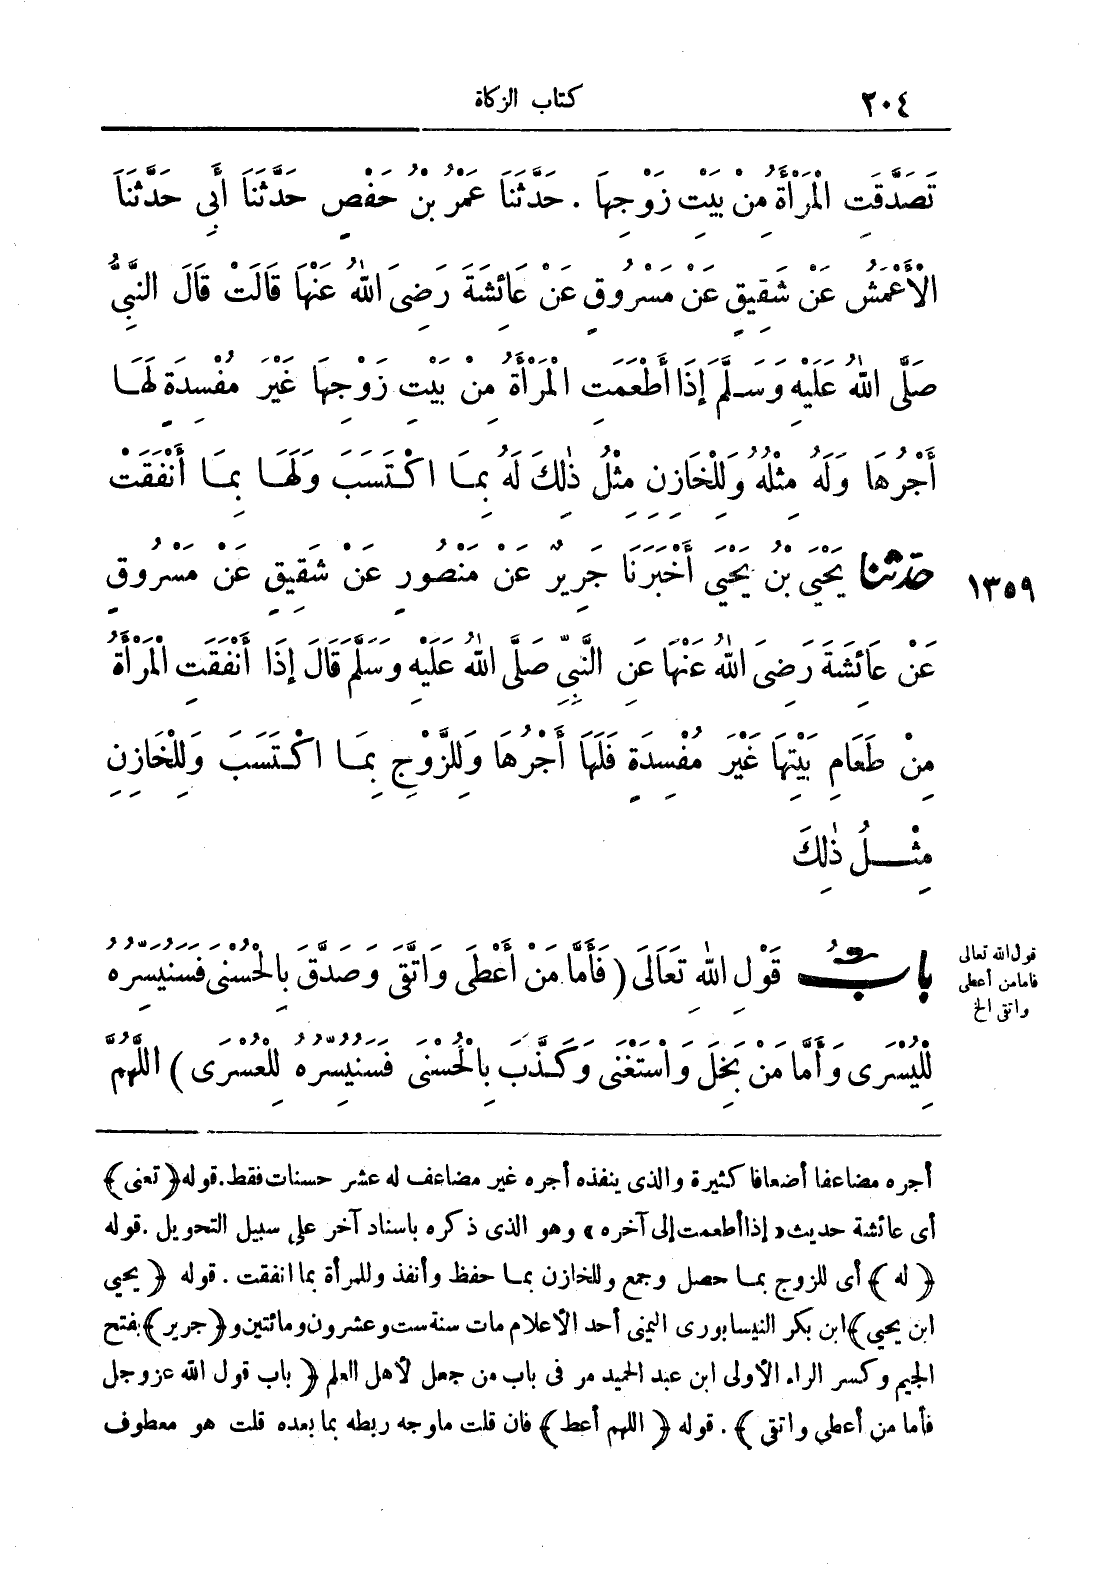 ٢٠٤ كتاب الزكاة
تَصَدَّقَتِ الْمَرْأَةُ مِنْ بَيْتِ زَوْجِهَا . حَدَّثَنَا عُمَرُ بْنُ حَفْصٍ حَدَّثَنَا أَبِى حَدَّثَنَا
الْأَعْمَشُ عَنْ شَقِيقٍ عَنْ مَسْرُوقٍ عَنْ عَائِشَةَ رَضِىَ اللهُ عَنْهَا قَالَتْ قَالَ النَّبِىُّ
صَلَّى اللهُ عَلَيْهِ وَسَلَّمَ إِذَا أَطْعَمَتِ الْمَرْأَةُ مِنْ بَيْتِ زَوْجِهَا غَيْرَ مُفْسِدَةٍ لَهَا
أَجْرُهَا وَلَهُ مِثْلُهُ وَلِلْخَازِنِ مِثْلُ ذٰلِكَ لَهُ بِمَا اكْتَسَبَ وَلَهَا بِمَا أَنْفَقَتْ
١٣٥٩ حدثنا يَحْيَى بْنُ يَحْيَى أَخْبَرَنَا جَرِيرٌ عَنْ مَنْصُورٍ عَنْ شَقِيقٍ عَنْ مَسْرُوقٍ
عَنْ عَائِشَةَ رَضِىَ اللهُ عَنْهَا عَنِ النَّبِىِّ صَلَّى اللهُ عَلَيْهِ وَسَلَّمَ قَالَ إِذَا أَنْفَقَتِ الْمَرْأَةُ
مِنْ طَعَامِ بَيْتِهَا غَيْرَ مُفْسِدَةٍ فَلَهَا أَجْرُهَا وَلِلزَّوْجِ بِمَا اكْتَسَبَ وَلِلْخَازِنِ
مِثْلُ ذٰلِكَ
بابُ قَوْلِ اللهِ تَعَالَى ( فَأَمَّا مَنْ أَعْطَى وَاتَّقَى وَصَدَّقَ بِالْحُسْنَى فَسَنُيَسِّرُهُ
قول الله تعالى
فأما من أعطى
واتقى الخ
لِلْيُسْرَى وَأَمَّا مَنْ بَخِلَ وَاسْتَغْنَى وَكَذَّبَ بِالْحُسْنَى فَسَنُيَسِّرُهُ لِلْعُسْرَى ) اللَّهُمَّ
أجره مضاعفا أضعافا كثيرة والذى ينفذه أجره غير مضاعف له عشر حسنات فقط. قوله ﴿تعنى﴾
أى عائشة حديث «إذا أطعمت إلى آخره» وهو الذى ذكره باسناد آخر على سبيل التحويل . قوله
﴿ له ﴾ أى للزوج بما حصل وجمع وللخازن بما حفظ وأنفذ وللمرأة بما انفقت . قوله ﴿ يحيى
ابن يحيى﴾ ابن بكر النيسابورى اليمنى أحد الأعلام مات سنة ست وعشرون ومائتين و﴿جرير﴾ بفتح
الجيم وكسر الراء الأولى ابن عبد الحميد مر فى باب من جعل لأهل العلم ﴿ باب قول الله عز وجل
فأما من أعطى واتقى ﴾ . قوله ﴿ اللهم أعط ﴾ فان قلت ما وجه ربطه بما بعده قلت هو معطوف